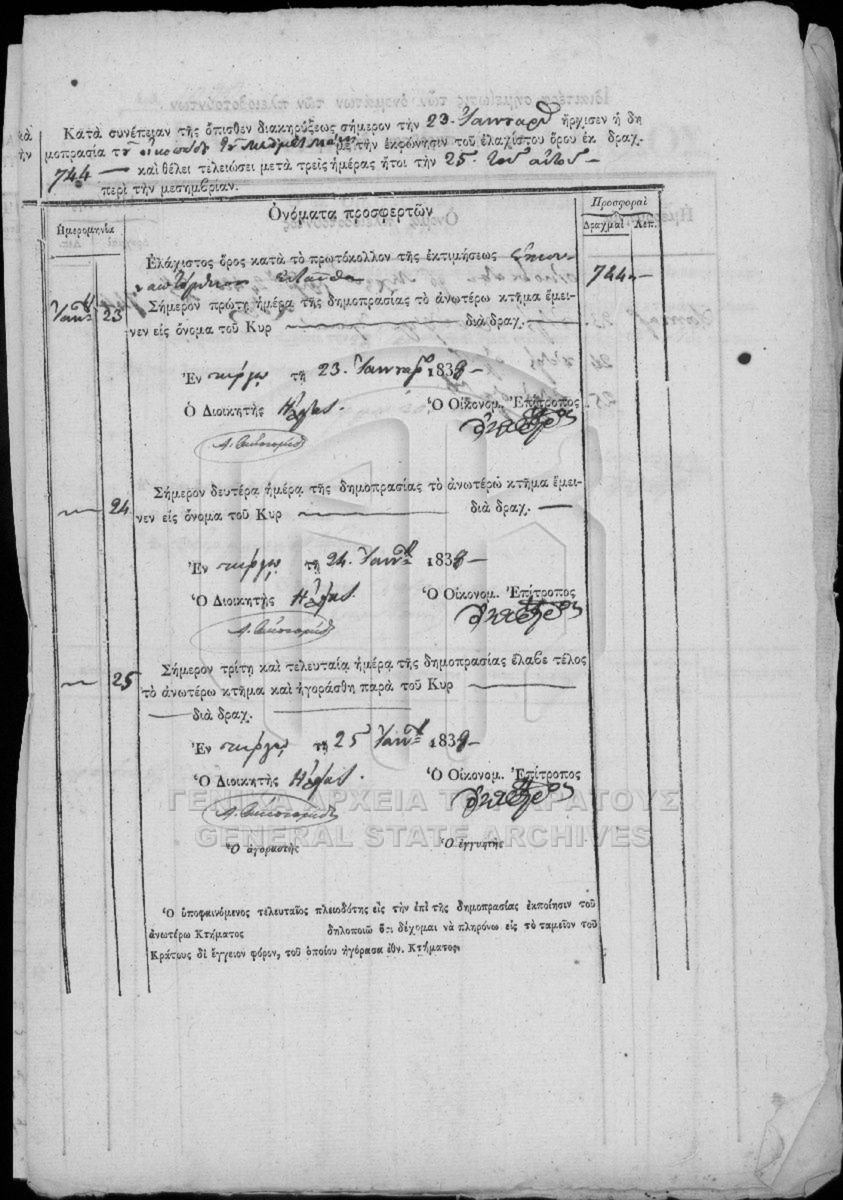 Κατὰ συνέπειαν τῆς ὄπισθεν διακηρύξεως σήμερον τὴν 23. Ἰανουαρίου ἤρχισεν ἡ δη
μοπρασία τοῦ μὲ τὴν ἐκφώνησιν τοῦ ἐλαχίστου ὅρου ἐκ δραχ.
744 — καὶ θέλει τελειώσει μετὰ τρεῖς ἡμέρας ἤτοι τὴν 25 τοῦ αὐτοῦ —
περὶ τὴν μεσημβρίαν.
Ἡμερομηνία
Ὀνόματα προσφερτῶν
Προσφοραὶ
Δραχμαὶ Λεπ.
Ἐλάχιστος ὅρος κατὰ τὸ πρωτόκολλον τῆς ἐκτιμήσεως
744 —
Ἰαν. 23 Σήμερον πρώτῃ ἡμέρᾳ τῆς δημοπρασίας τὸ ἀνωτέρω κτῆμα ἔμει-
νεν εἰς ὄνομα τοῦ Κυρ — διὰ δραχ. —
Ἐν πύργῳ τῇ 23. Ἰανουαρ. 1838 —
Ὁ Διοικητὴς Ἠλείας. Ὁ Οἰκονομ. Ἐπίτροπος
— 24 Σήμερον δευτέρᾳ ἡμέρᾳ τῆς δημοπρασίας τὸ ἀνωτέρω κτῆμα ἔμει-
νεν εἰς ὄνομα τοῦ Κυρ — διὰ δραχ. —
Ἐν πύργῳ τῇ 24. Ἰαν. 1838 —
Ὁ Διοικητὴς Ἠλείας. Ὁ Οἰκονομ. Ἐπίτροπος
— 25 Σήμερον τρίτῃ καὶ τελευταίᾳ ἡμέρᾳ τῆς δημοπρασίας ἔλαβε τέλος
τὸ ἀνωτέρω κτῆμα καὶ ἠγοράσθη παρὰ τοῦ Κυρ —
— διὰ δραχ. —
Ἐν πύργῳ τῇ 25 Ἰαν. 1838 —
Ὁ Διοικητὴς Ἠλείας. Ὁ Οἰκονομ. Ἐπίτροπος
ΓΕΝΙΚΑ ΑΡΧΕΙΑ ΤΟΥ ΚΡΑΤΟΥΣ
GENERAL STATE ARCHIVES
Ὁ ἀγοραστὴς Ὁ ἐγγυητής
Ὁ ὑποφαινόμενος τελευταῖος πλειοδότης εἰς τὴν ἐπὶ τῆς δημοπρασίας ἐκποίησιν τοῦ
ἀνωτέρω Κτήματος δηλοποιῶ ὅτι δέχομαι νὰ πληρόνω εἰς τὸ ταμεῖον τοῦ
Κράτους δι ἔγγειον φόρον, τοῦ ὁποίου ἠγόρασα ἐθν. Κτήματος